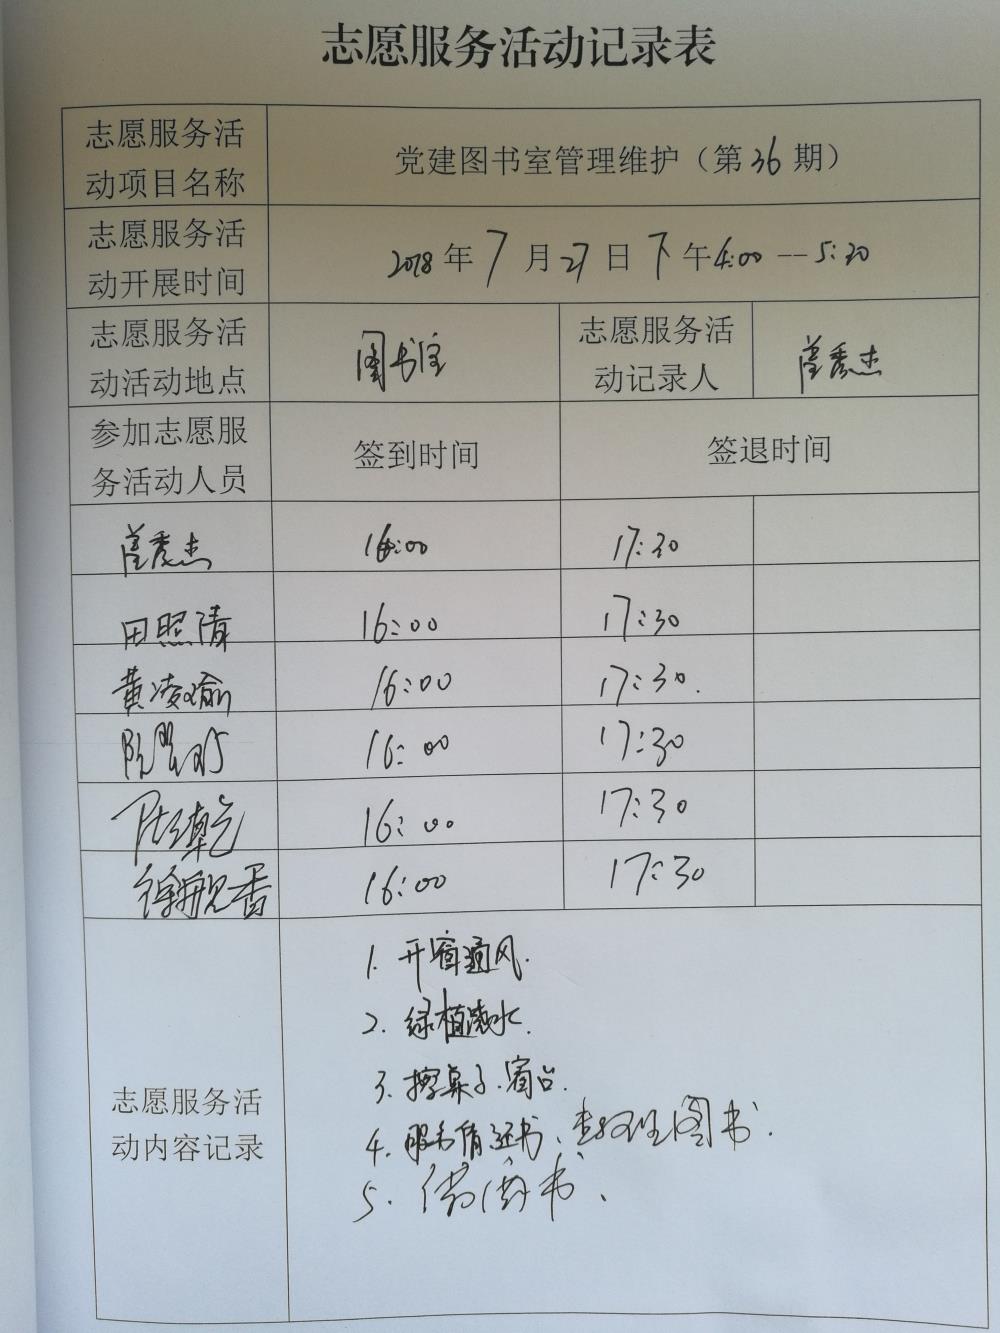 志愿服务活动记录表
志愿服务活
动项目名称
党建图书室管理维护（第36期）
志愿服务活
动开展时间
2018年7月27日下午4:00--5:30
志愿服务活
动活动地点
图书室
志愿服务活
动记录人
秀杰
参加志愿服
务活动人员
签到时间
签退时间
秀杰 16:00 17:30
田照清 16:00 17:30
黄凌瑜 16:00 17:30
16:00 17:30
16:00 17:30
徐艳香 16:00 17:30
志愿服务活
动内容记录
1. 开窗通风.
2. 绿植浇水.
3. 擦桌子.窗台.
4. 服务借还书、整理图书.
5.